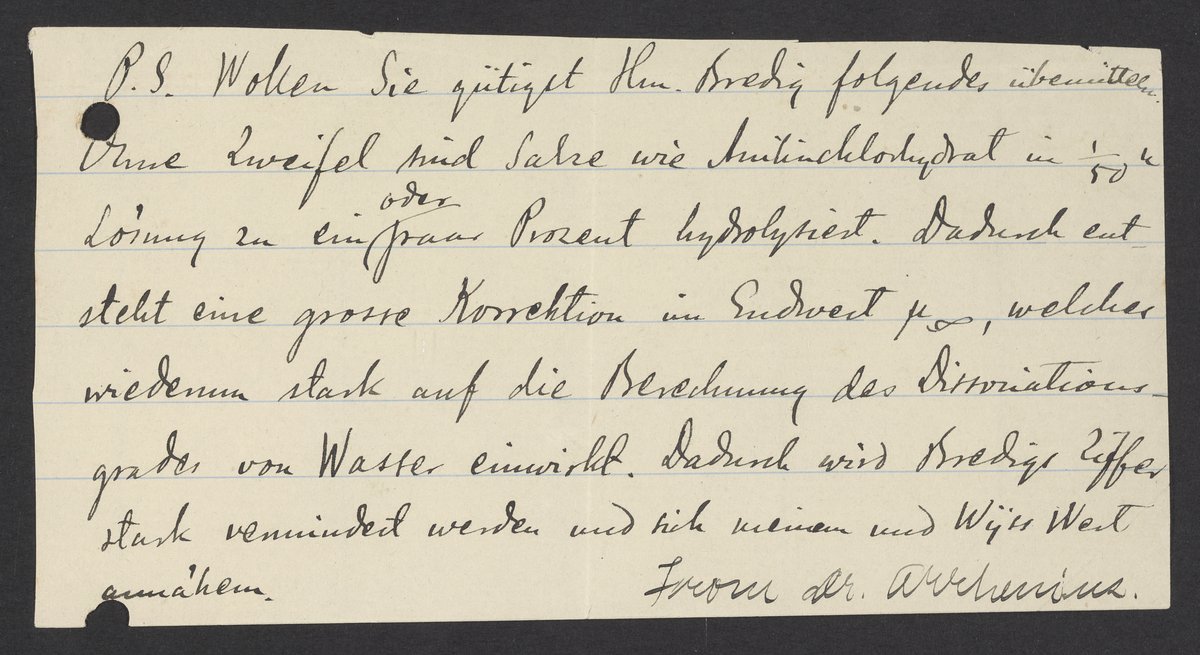 P.S. Wollen Sie gütigst Hrn. Bredig folgendes übermitteln.
Ohne Zweifel sind Salze wie Anilinchlorhydrat in 1/50 n
Lösung zu ein oder paar Prozent hydrolysiert. Dadurch ent-
steht eine grosse Korrektion im Endwert μ∞, welcher
wiederum stark auf die Berechnung des Dissociations-
grades von Wasser einwirkt. Dadurch wird Bredigs Ziffer
stark vermindert werden und sich meinem und Wijs Wert
annähern.
From Dr. Arrhenius.